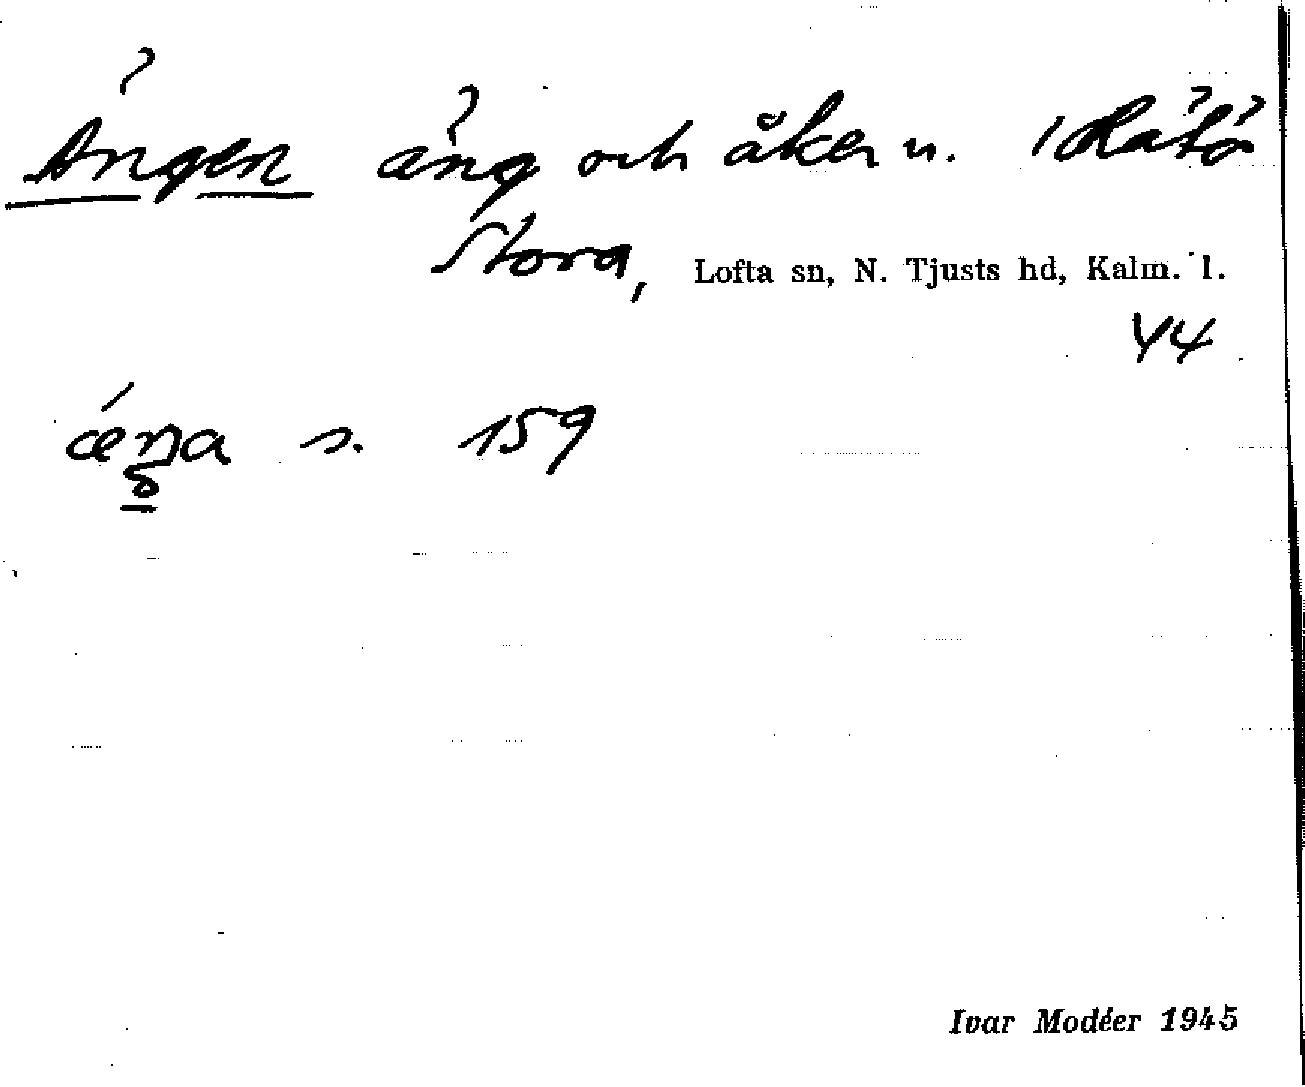 Ängen äng och åker u. Rätö
Stora, Lofta sn, N. Tjusts hd, Kalm. l.
44
ǽŋa s. 159
Ivar Modéer 1945